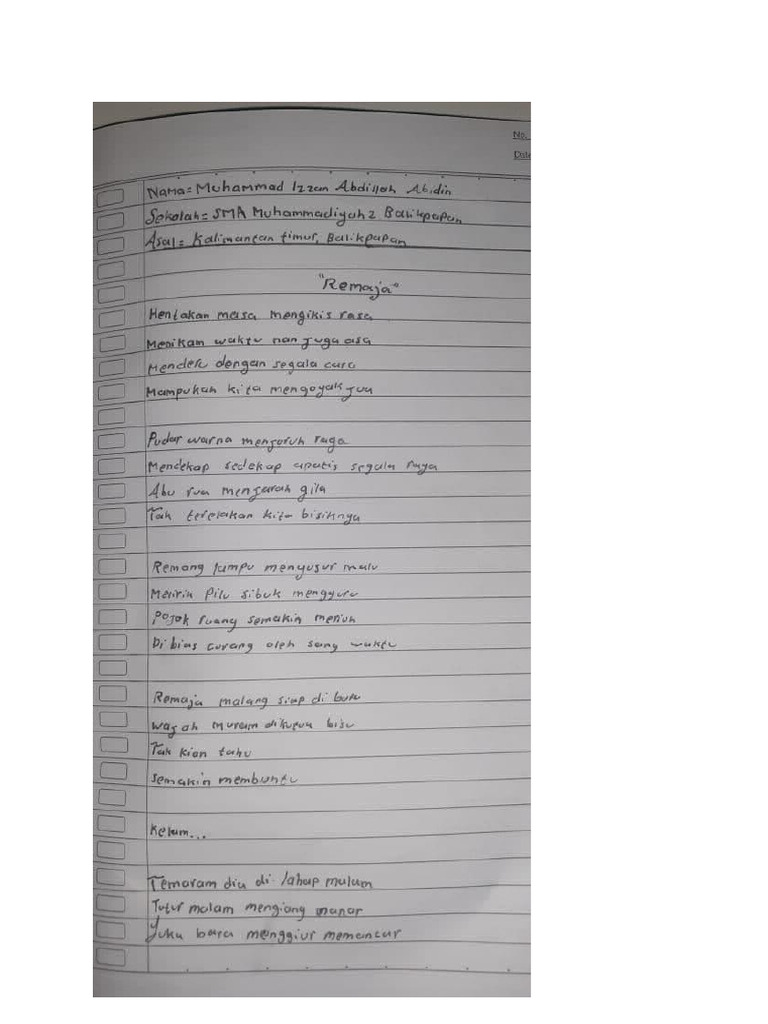 No.
Date
Nama = Muhammad Izzan Abdillah Abidin
Sekolah = SMA Muhammadiyah 2 Balikpapan
Asal = Kalimantan timur, Balikpapan
"Remaja"
Hentakan masa mengikis rasa
Menikam waktu nan juga asa
Menderu dengan segala cara
Mampukah kita mengoyak jua
Pudar warna menjarah raga
Mendekap sedekap apatis segala raga
Abu rua menjarah gila
Tak terelakan kita bisiknya
Remang lampu menyusur malu
Melirik pilu sibuk mengguru
Pojok ruang semakin menjuh
Di bias curang oleh sang waktu
Remaja malang siap di buru
Wajah muram dikupuk bisu
Tak kian tahu
Semakin membuntu
Kelam...
Temaram dia di lahap malam
Tutur malam mengiang manar
Juka bara menggiur memancar